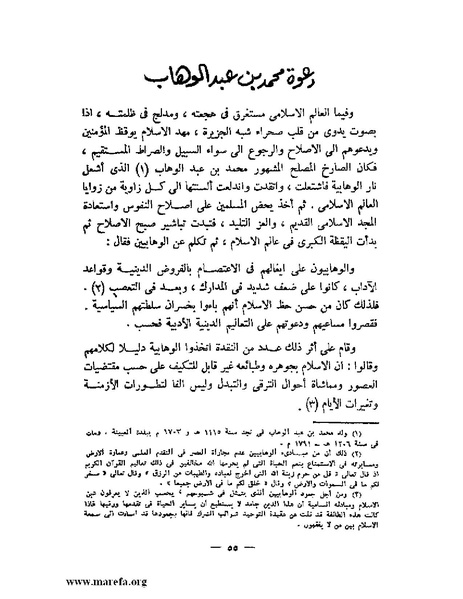 دعوة محمد بن عبد الوهاب
وفيما العالم الاسلامى مستغرق فى هجعته ، ومدلج فى ظلمته ، اذا
بصوت يدوى من قلب صحراء شبه الجزيرة ، مهد الاسلام يوقظ المؤمنين
ويدعوهم الى الاصلاح والرجوع الى سواء السبيل والصراط المستقيم ،
فكان الصارخ المصلح المشهور محمد بن عبد الوهاب (١) الذى أشعل
نار الوهابية فاشتعلت ، واتقدت واندلعت ألسنتها الى كل زاوية من زوايا
العالم الاسلامى . ثم أخذ يحض المسلمين على اصلاح النفوس واستعادة
المجد الاسلامى القديم ، والعز التليد ، فتبدت تباشير صبح الاصلاح ثم
بدأت اليقظة الكبرى فى عالم الاسلام ، ثم تكلم عن الوهابيين فقال :
والوهابيون على ايغالهم فى الاعتصام بالفروض الدينية وقواعد
الآداب ، كانوا على ضعف شديد فى المدارك ، وبعد فى التعصب (٢) .
فلذلك كان من حسن حظ الاسلام أنهم باءوا بخسران سلطتهم السياسية .
فقصروا مساعيهم ودعوتهم على التعاليم الدينية الأدبية فحسب .
وقام على أثر ذلك عدد من النقدة اتخذوا الوهابية دليلا لكلامهم
وقالوا : ان الاسلام بجوهره وطبائعه غير قابل للتكيف على حسب مقتضيات
العصور ومماشاة أحوال الترقى والتبدل وليس الفا لتطورات الأزمنة
وتغيرات الأيام (٣) .
(١) ولد محمد بن عبد الوهاب فى نجد سنة ١١١٥ هـ و ١٧٠٣ م ببلدة العيينة . ومات
فى سنة ١٢٠٦ هـ - ١٧٩١ م .
(٢) ذلك أن من مبادىء الوهابيين عدم مجاراة العصر فى التقدم العلمى وعمارة الارض
ومسايرته فى الاستمتاع بنعم الحياة التى لم يحرمها الله مخالفين فى ذلك تعاليم القرآن الكريم
كما فى قوله تعالى « قل من حرم زينة الله التى أخرج لعباده والطيبات من الرزق » وقال تعالى « وسخر
لكم ما فى السموات والارض » وقال « خلق لكم ما فى الارض جميعا » .
(٣) ومن أجل جمود الوهابيين الذى يتمثل فى شيوخهم ، يحسب الذين لا يعرفون دين
الاسلام ومبادئه السامية أن هذا الدين جامد لا يستطيع أن يساير الحياة فى تقدمها ورقيها فاذا
كانت هذه الطائفة قد نقت عن عقيدة التوحيد شوائب الشرك فانها بجمودها قد أساءت الى سمعة
الاسلام بين من لا يفقهون .
— ٥٥ —
www.marefa.org